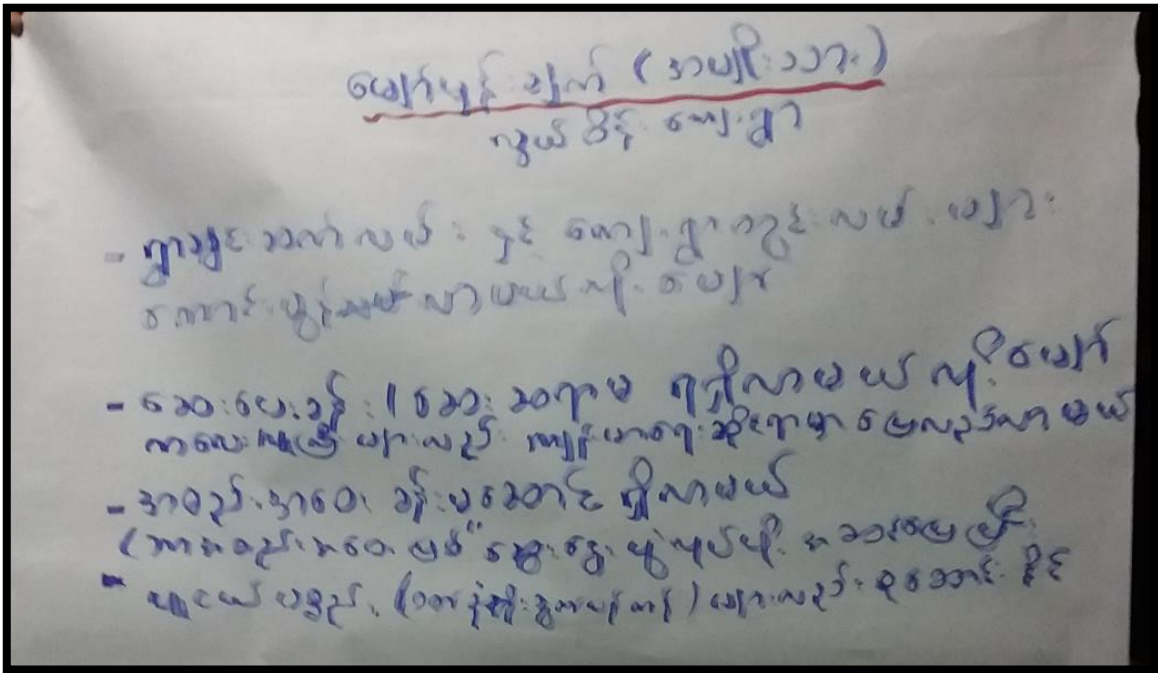 မျှော်မှန်းချက် (အမျိုးသား)
လွယ်ပိန်း ကျေးရွာ
- ရွာချင်းဆက်လမ်း နှင့် ကျေးရွာတွင်းလမ်းများ
ကောင်းမွန်လာမယ်လို့ မျှော်
- ဆေးပေးခန်း / ဆေးဆရာမ ရရှိလာမယ်လို့ မျှော်
ကလေးလူကြီးများလည်း ကျန်းမာရေးဆိုင်ရာမှာ ပြေလည်လာမယ်
- အစည်းအဝေး ခန်းမဆောင် ရှိလာမယ်
(အစည်းအဝေး ဆွေးနွေးပွဲလုပ်ဖို့ အဆင်ပြေပြီး
- များလည်း